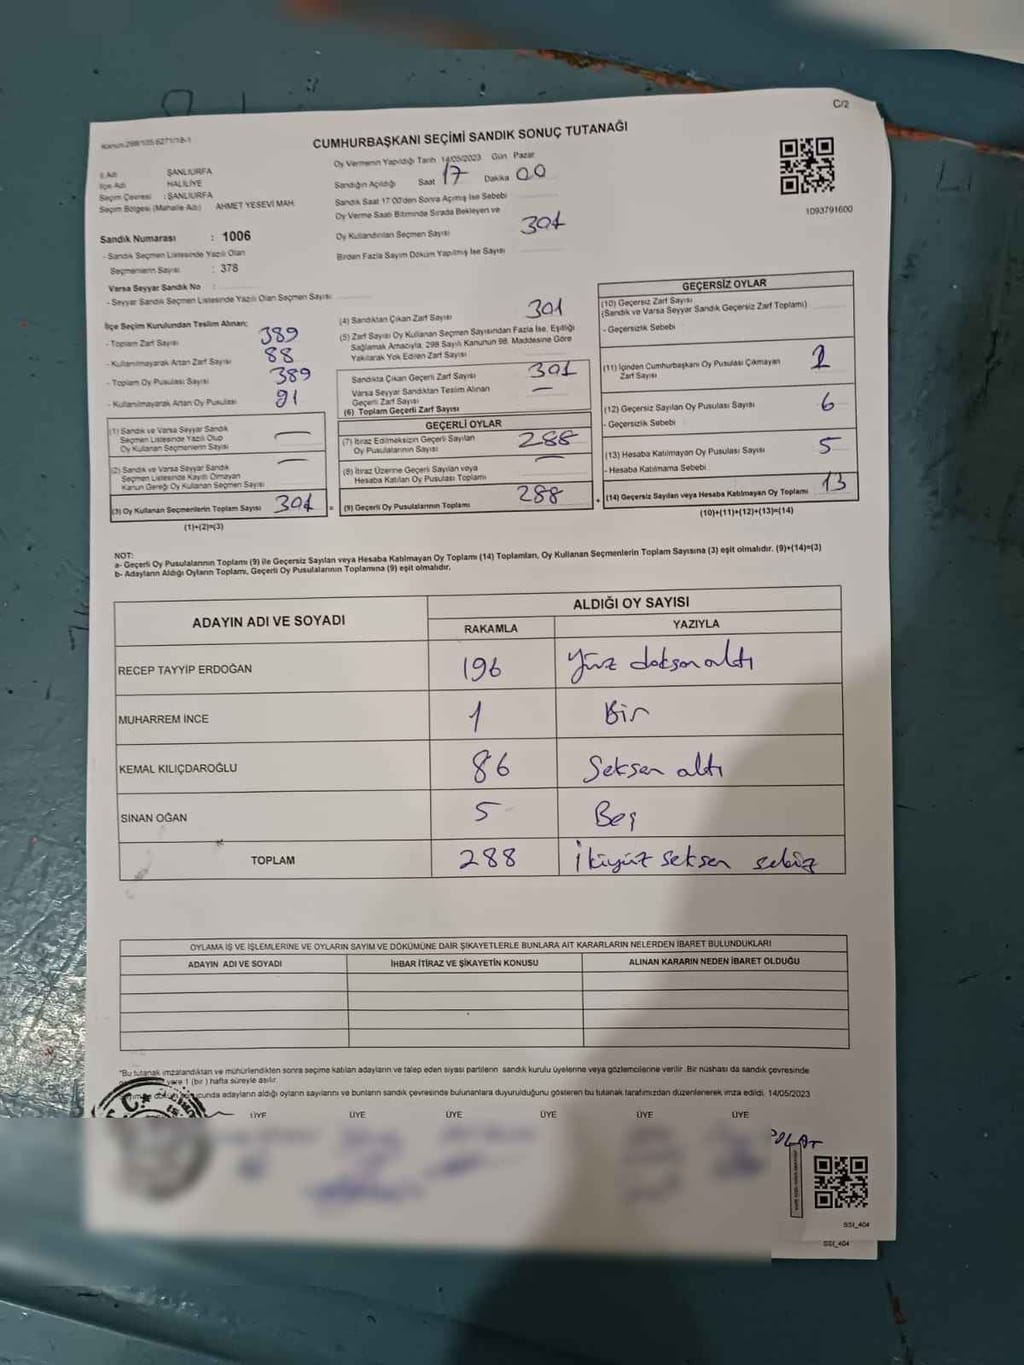 C/2
Kanun:298/105 6271/18-1
CUMHURBAŞKANI SEÇİMİ SANDIK SONUÇ TUTANAĞI
İl Adı ŞANLIURFA
İlçe Adı HALİLİYE
Seçim Çevresi : ŞANLIURFA
Seçim Bölgesi (Mahalle Adı) AHMET YESEVİ MAH.
Oy Vermenin Yapıldığı Tarih 14/05/2023 Gün Pazar
Sandığın Açıldığı Saat 17 Dakika 00
Sandık Saat 17:00'den Sonra Açılmış İse Sebebi
Oy Verme Saati Bitiminde Sırada Bekleyen ve
Oy Kullandırılan Seçmen Sayısı 301
Birden Fazla Sayım Döküm Yapılmış İse Sayısı
1093791600
Sandık Numarası : 1006
- Sandık Seçmen Listesinde Yazılı Olan
Seçmenlerin Sayısı : 378
Varsa Seyyar Sandık No :
- Seyyar Sandık Seçmen Listesinde Yazılı Olan Seçmen Sayısı
İlçe Seçim Kurulundan Teslim Alınan;
- Toplam Zarf Sayısı 389
- Kullanılmayarak Artan Zarf Sayısı 88
- Toplam Oy Pusulası Sayısı 389
- Kullanılmayarak Artan Oy Pusulası 91
(1) Sandık ve Varsa Seyyar Sandık
Seçmen Listesinde Yazılı Olup
Oy Kullanan Seçmenlerin Sayısı —
(2) Sandık ve Varsa Seyyar Sandık
Seçmen Listesinde Kayıtlı Olmayan
Kanun Gereği Oy Kullanan Seçmen Sayısı —
(3) Oy Kullanan Seçmenlerin Toplam Sayısı 301 =
(1)+(2)=(3)
(4) Sandıktan Çıkan Zarf Sayısı 301
(5) Zarf Sayısı Oy Kullanan Seçmen Sayısından Fazla İse, Eşitliği
Sağlamak Amacıyla, 298 Sayılı Kanunun 98. Maddesine Göre
Yakılarak Yok Edilen Zarf Sayısı
Sandıkta Çıkan Geçerli Zarf Sayısı 301
Varsa Seyyar Sandıktan Teslim Alınan
Geçerli Zarf Sayısı —
(6) Toplam Geçerli Zarf Sayısı
GEÇERLİ OYLAR
(7) İtiraz Edilmeksizin Geçerli Sayılan
Oy Pusulalarının Sayısı 288
(8) İtiraz Üzerine Geçerli Sayılan veya
Hesaba Katılan Oy Pusulası Toplamı —
(9) Geçerli Oy Pusulalarının Toplamı 288 +
GEÇERSİZ OYLAR
(10) Geçersiz Zarf Sayısı
(Sandık ve Varsa Seyyar Sandık Geçersiz Zarf Toplamı)
- Geçersizlik Sebebi
(11) İçinden Cumhurbaşkanı Oy Pusulası Çıkmayan
Zarf Sayısı 2
(12) Geçersiz Sayılan Oy Pusulası Sayısı 6
- Geçersizlik Sebebi
(13) Hesaba Katılmayan Oy Pusulası Sayısı 5
- Hesaba Katılmama Sebebi
(14) Geçersiz Sayılan veya Hesaba Katılmayan Oy Toplamı 13
(10)+(11)+(12)+(13)=(14)
NOT:
a- Geçerli Oy Pusulalarının Toplamı (9) ile Geçersiz Sayılan veya Hesaba Katılmayan Oy Toplamı (14) Toplamları, Oy Kullanan Seçmenlerin Toplam Sayısına (3) eşit olmalıdır. (9)+(14)=(3)
b- Adayların Aldığı Oyların Toplamı, Geçerli Oy Pusulalarının Toplamına (9) eşit olmalıdır.
ADAYIN ADI VE SOYADI ALDIĞI OY SAYISI
RAKAMLA YAZIYLA
RECEP TAYYİP ERDOĞAN 196 Yüz doksan altı
MUHARREM İNCE 1 Bir
KEMAL KILIÇDAROĞLU 86 Seksen altı
SİNAN OĞAN 5 Beş
TOPLAM 288 İkiyüz seksen sekiz
OYLAMA İŞ VE İŞLEMLERİNE VE OYLARIN SAYIM VE DÖKÜMÜNE DAİR ŞİKAYETLERLE BUNLARA AİT KARARLARIN NELERDEN İBARET BULUNDUKLARI
ADAYIN ADI VE SOYADI İHBAR İTİRAZ VE ŞİKAYETİN KONUSU ALINAN KARARIN NEDEN İBARET OLDUĞU
"Bu tutanak imzalandıktan ve mühürlendikten sonra seçime katılan adayların ve talep eden siyasi partilerin sandık kurulu üyelerine veya gözlemcilerine verilir. Bir nüshası da sandık çevresinde
yere 1 (bir) hafta süreyle asılır.
ucunda adayların aldığı oyların sayılarını ve bunların sandık çevresinde bulunanlara duyurulduğunu gösteren bu tutanak tarafımızdan düzenlenerek imza edildi. 14/05/2023
ÜYE ÜYE ÜYE ÜYE ÜYE ÜYE
SSI_404
SSI_404